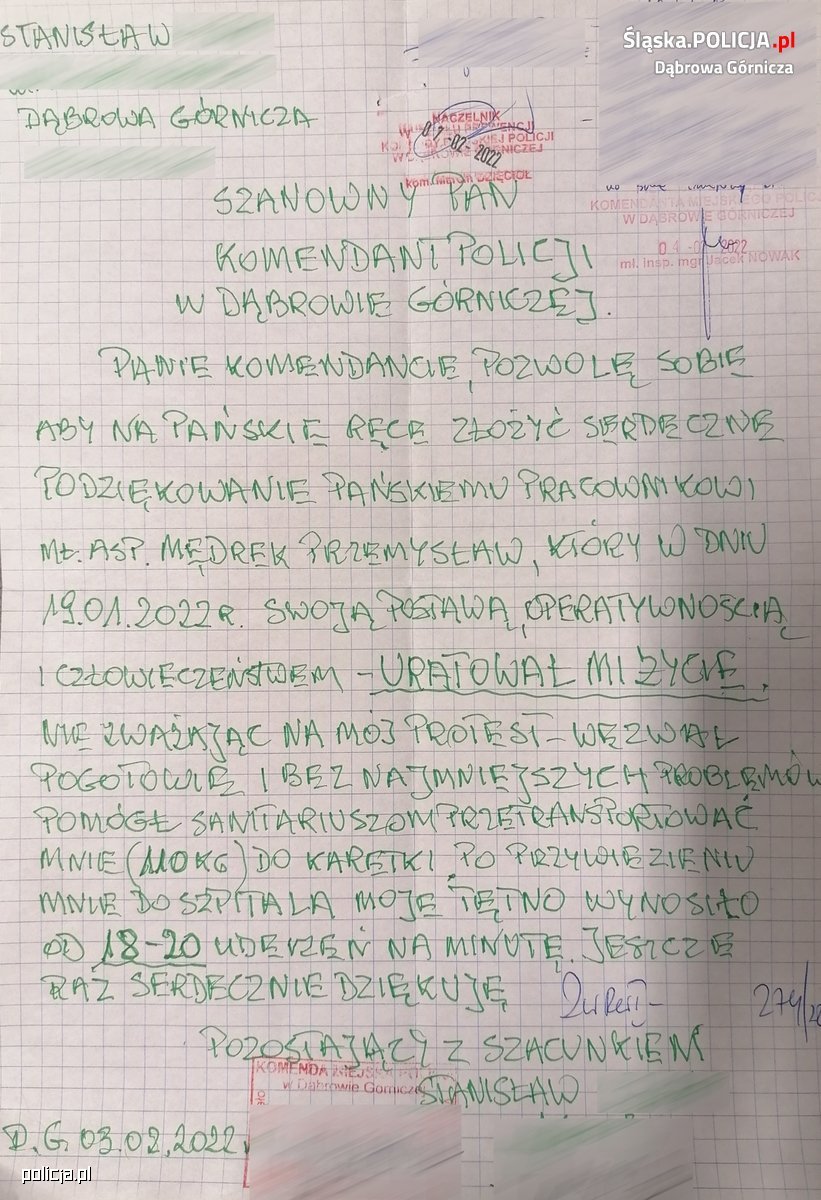 STANISŁAW
Śląska.POLICJA.pl
Dąbrowa Górnicza
DĄBROWA GÓRNICZA
NACZELNIK
07-02-2022
SZANOWNY PAN
KOMENDANTA MIEJSKIEGO POLICJI
W DĄBROWIE GÓRNICZEJ
04 2022
mł. insp. mgr Jacek NOWAK
KOMENDANT POLICJI
W DĄBROWIE GÓRNICZEJ.
PANIE KOMENDANCIE, POZWOLĘ SOBIE
ABY NA PAŃSKIE RĘCE ZŁOŻYĆ SERDECZNE
PODZIĘKOWANIE PAŃSKIEMU PRACOWNIKOWI
MŁ. ASP. MĘDREK PRZEMYSŁAW, KTÓRY W DNIU
19.01.2022R. SWOJĄ POSTAWĄ, OPERATYWNOŚCIĄ
I CZŁOWIECZEŃSTWEM – URATOWAŁ MI ŻYCIE.
NIE ZWAŻAJĄC NA MÓJ PROTEST – WEZWAŁ
POGOTOWIE I BEZ NAJMNIEJSZYCH PROBLEMÓW
POMÓGŁ SANITARIUSZOM PRZETRANSPORTOWAĆ
MNIE (110 KG) DO KARETKI. PO PRZYWIEZIENIU
MNIE DO SZPITALA MOJE TĘTNO WYNOSIŁO
OD 18-20 UDERZEŃ NA MINUTĘ. JESZCZE
RAZ SERDECZNIE DZIĘKUJĘ
274/22
POZOSTAJĄCY Z SZACUNKIEM
KOMENDA MIEJSKA POLICJI
w Dąbrowie Górniczej
STANISŁAW
D.G. 03.02.2022
policja.pl